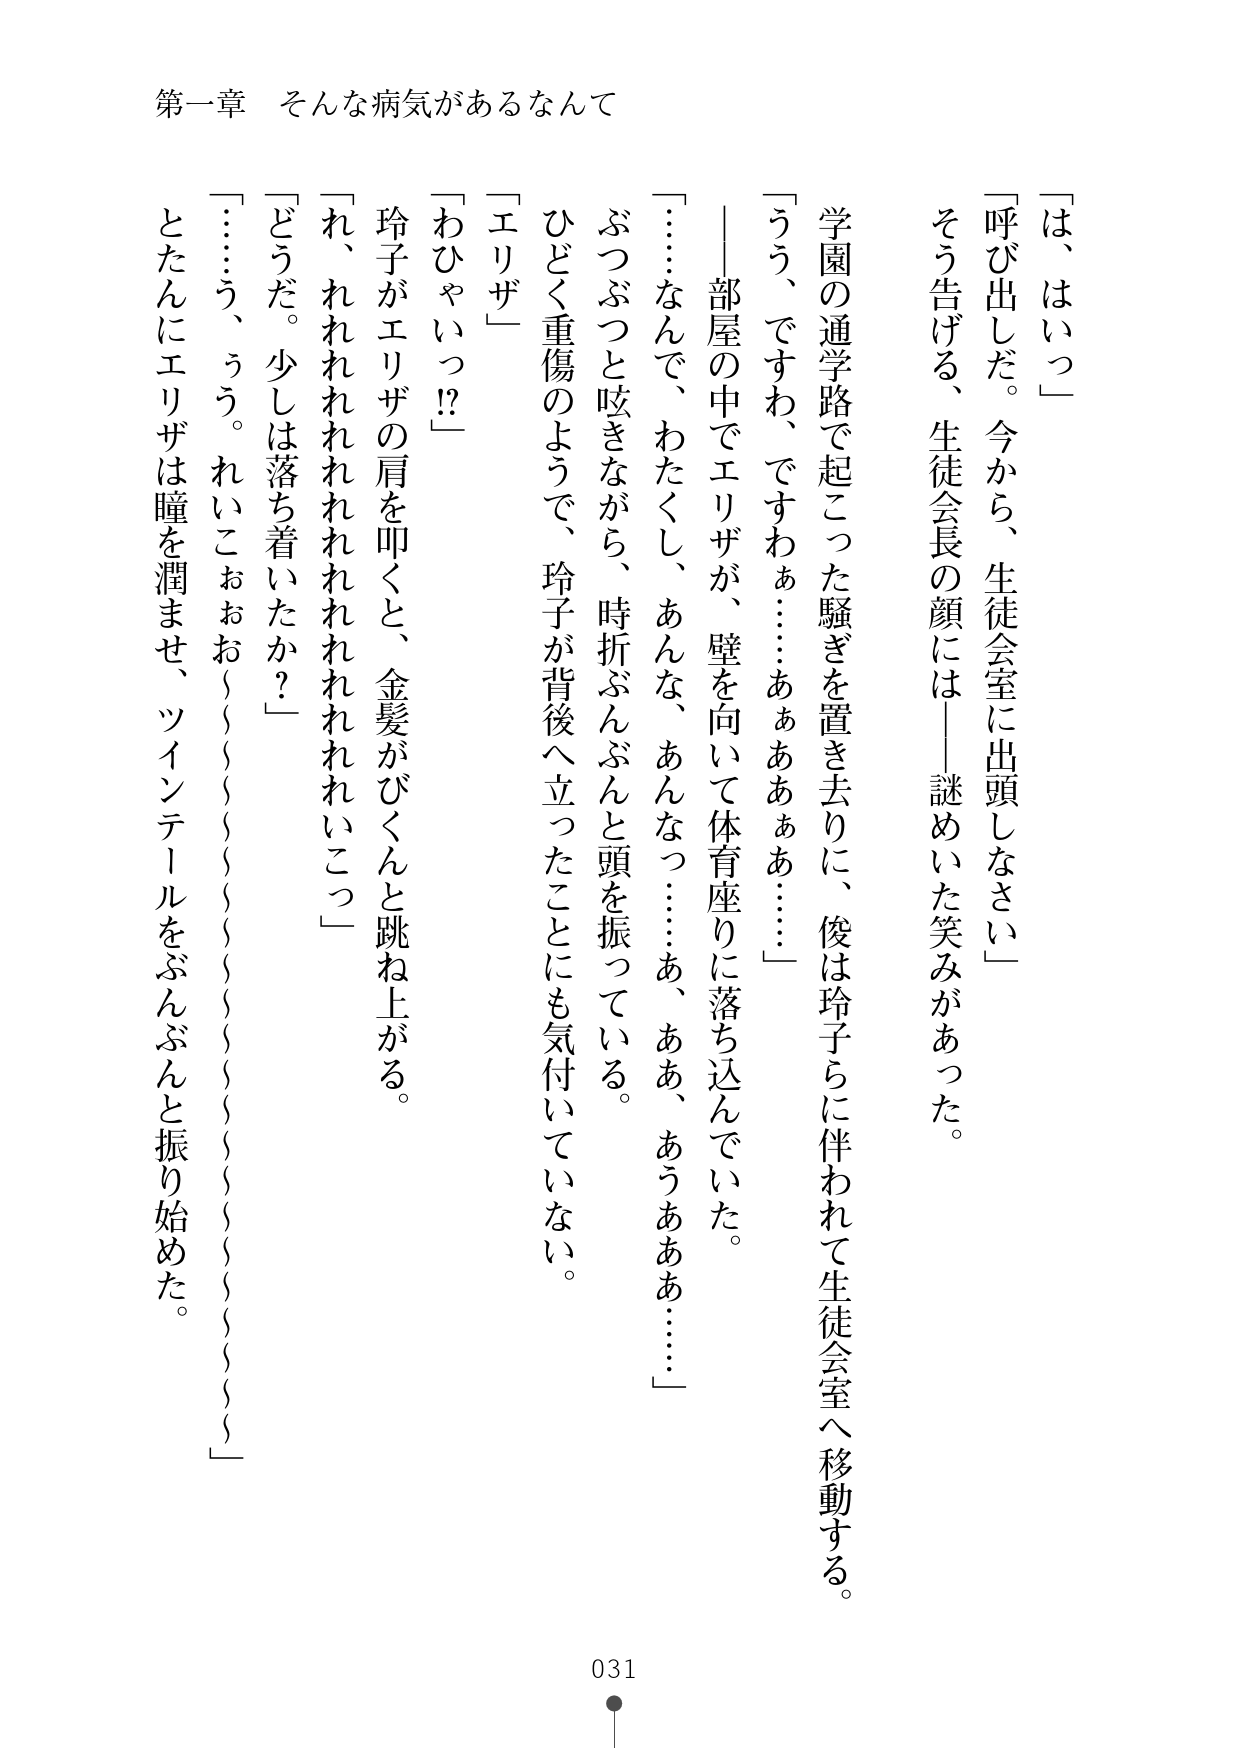 第一章　そんな病気があるなんて
「は、はいっ」
「呼び出しだ。今から、生徒会室に出頭しなさい」
そう告げる、生徒会長の顔には――謎めいた笑みがあった。
学園の通学路で起こった騒ぎを置き去りに、俊は玲子らに伴われて生徒会室へ移動する。
「うう、ですわ、ですわぁ……あぁああぁあ……」
――部屋の中でエリザが、壁を向いて体育座りに落ち込んでいた。
「……なんで、わたくし、あんな、あんなっ……あ、ああ、あうあああ……」
ぶつぶつと呟きながら、時折ぶんぶんと頭を振っている。
ひどく重傷のようで、玲子が背後へ立ったことにも気付いていない。
「エリザ」
「わひゃいっ!?」
玲子がエリザの肩を叩くと、金髪がびくんと跳ね上がる。
「れ、れれれれれれれれれれれれれれいこっ」
「どうだ。少しは落ち着いたか？」
「……う、ぅう。れいこぉぉお～～～～～～～～～～～～～～～～～～～～～～」
とたんにエリザは瞳を潤ませ、ツインテールをぶんぶんと振り始めた。
031